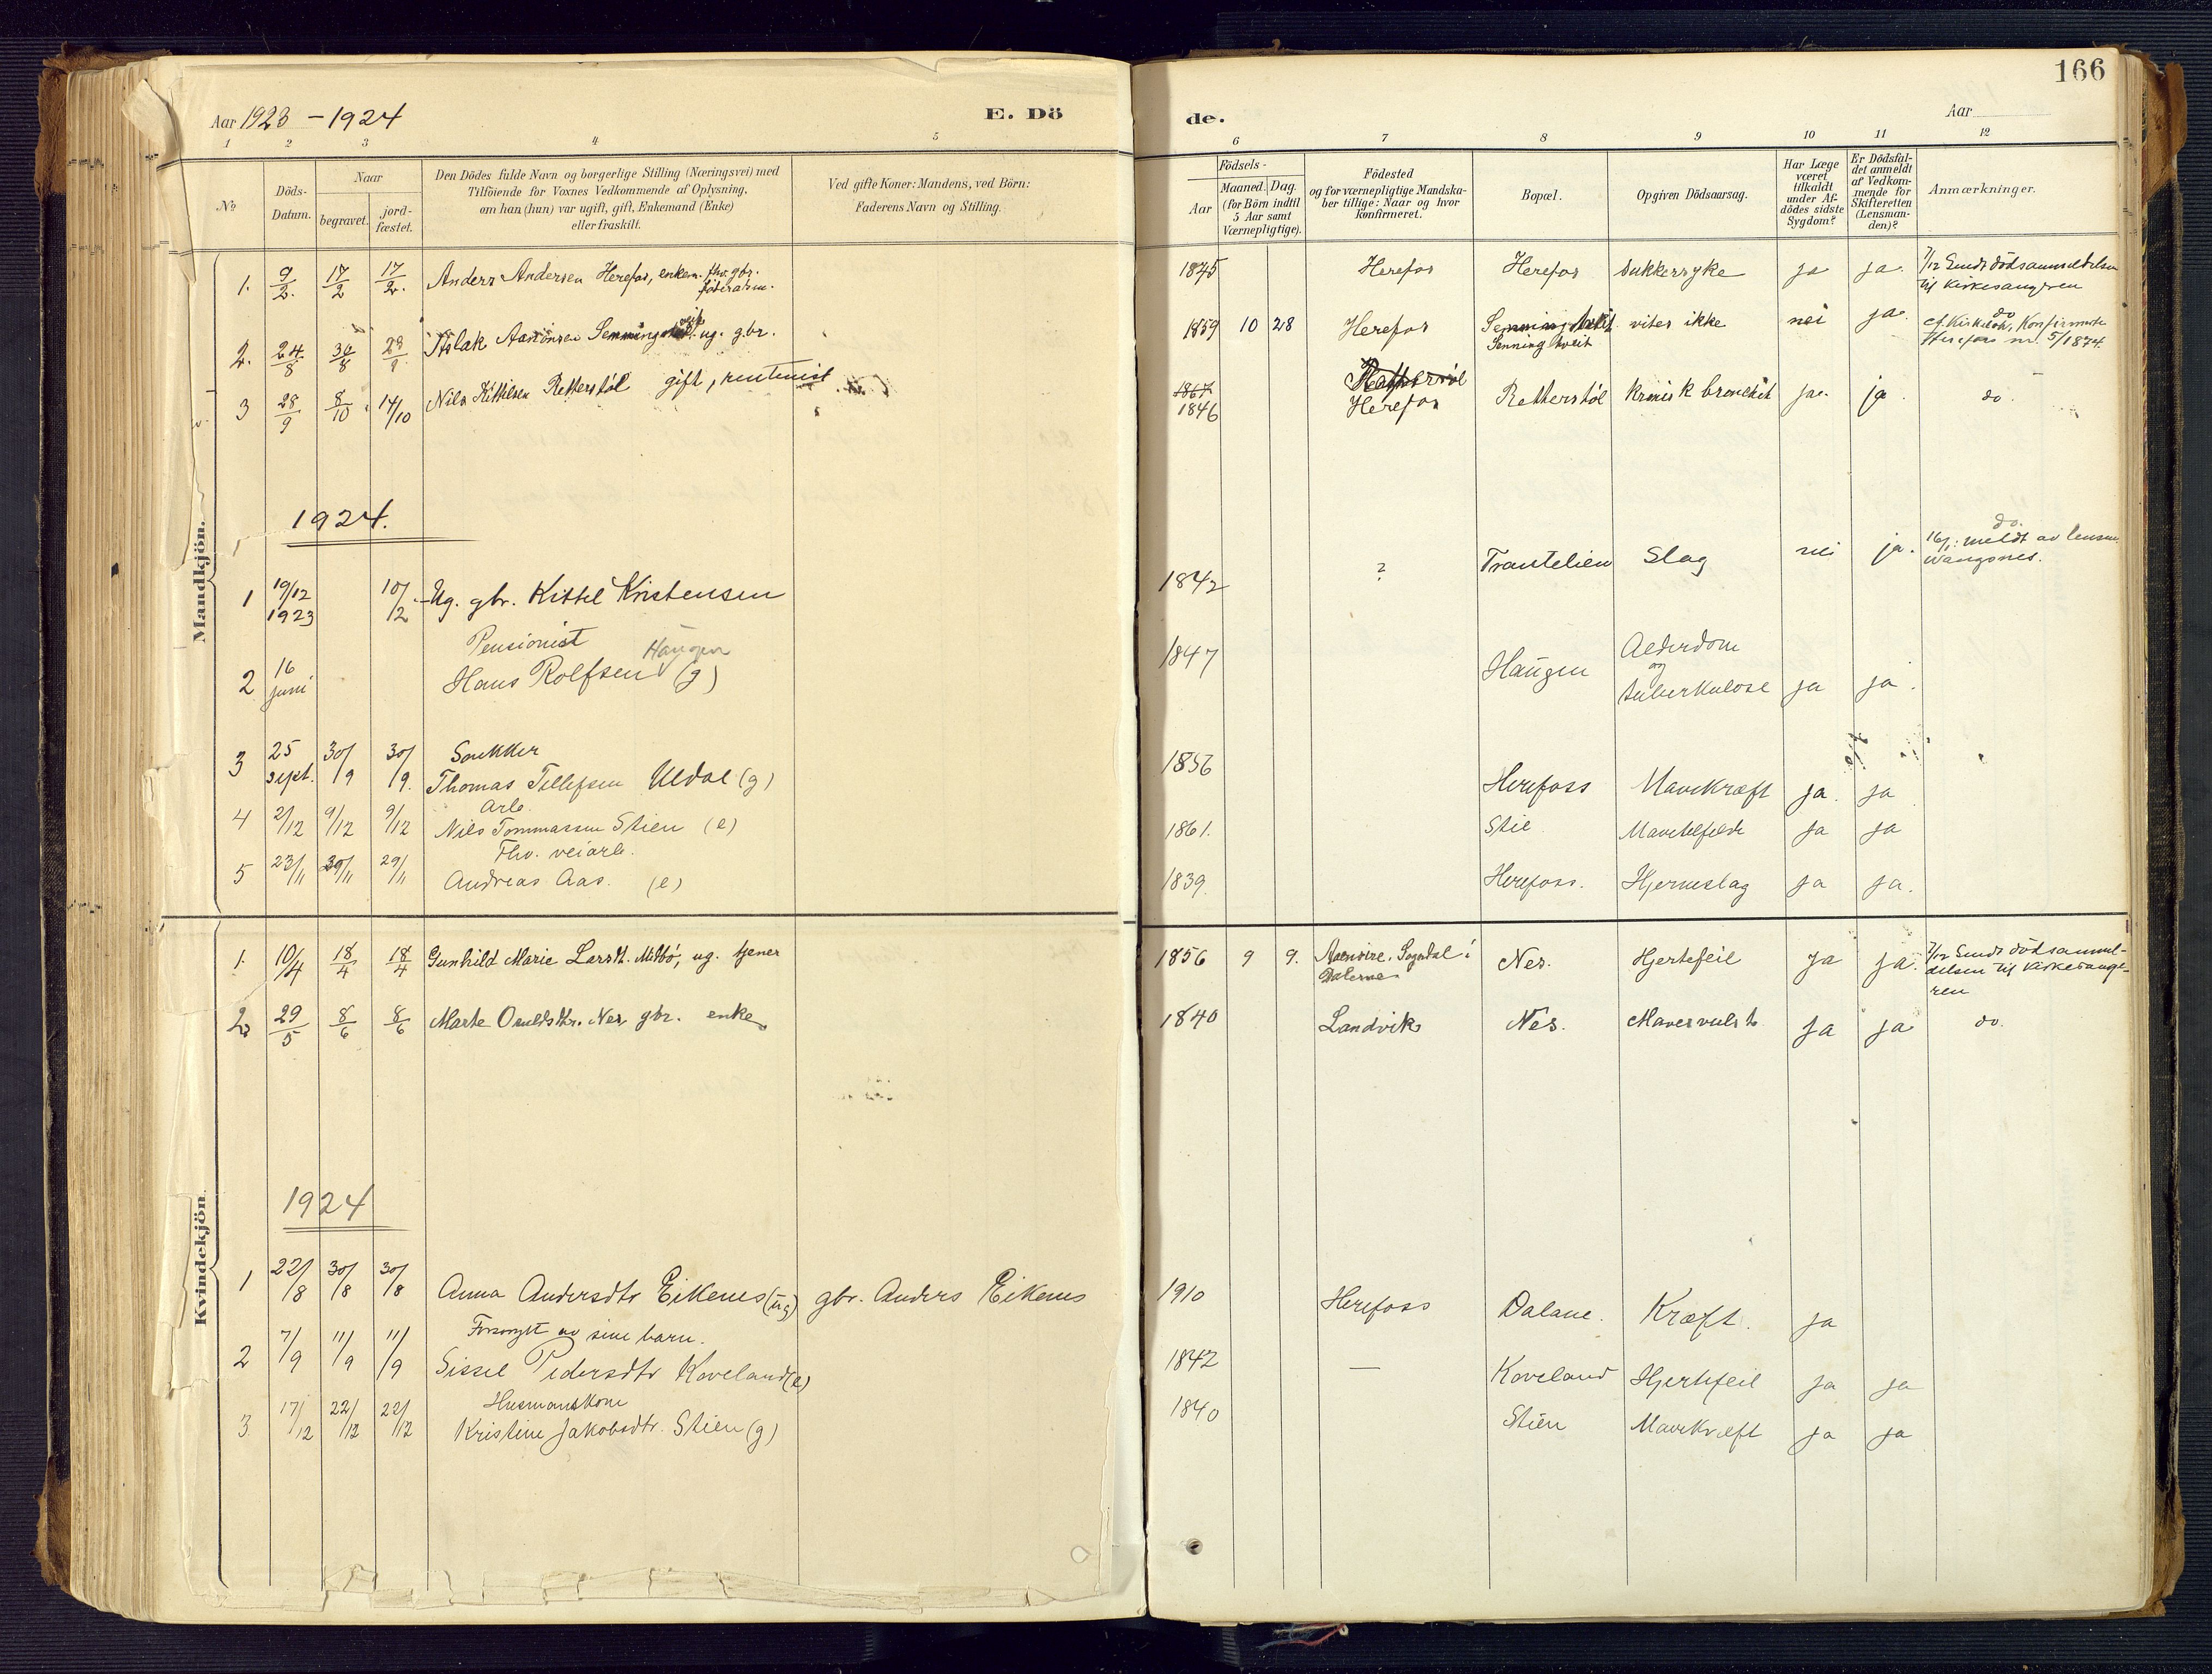 166
Aar 1923 - 1924
E. Dö
de.
Aar
1 2 3 4 5 6 7 8 9 10 11 12
No
Döds-Datum.
Naar
begravet.
jord-fæstet.
Den Dödes fulde Navn og borgerlige Stilling (Næringsvei) med
Tilföiende for Voxnes Vedkommende af Oplysning,
om han (hun) var ugift, gift, Enkemand (Enke)
eller fraskilt.
Ved gifte Koner: Mandens, ved Börn:
Faderens Navn og Stilling.
Födsels-
Aar
Maaned. Dag.
(for Börn indtil
5 Aar samt
Værnepligtige).
Födested
og for værnepligtige Mandska-
ber tillige: Naar og hvor
konfirmeret.
Bopæl.
Opgiven Dödsaarsag.
Har Læge
været
tilkaldt
under Af-
dödes sidste
Sygdom?
Er Dödsfal-
det anmeldt
af Vedkom-
mende for
Skifteretten
(Lensman-
den)?
Anmærkninger.
Mandkjön.
1. 9/2. 17/2 17/2. Anders Andersen Herefos, enkem. fhv. gbr. föderaadsm. 1845 Herefos Herefos Sukkersyke ja ja. 7/12 Sendt dödsanmeldelsen
til kirkesangeren
2. 24/8 30/8 28/9 Aslak Aanonsen Senningstveit ug. gbr. 1859 10 28 Herefos Senningtveit vites ikke nei ja. do
Senningtveit cf. Kirkebok, Konfirmerte
Herefos nr. 5/1874.
3 28/9 8/10 14/10 Nils Kittilsen Retterstöl gift, rentenist 1867 Retterstöl
1846 Herefos Retterstöl Kronisk bronchit ja. ja. do.
1924.
1 19/12 1923 10/2 Ug. gbr. Kittel Kristensen 1842 ? Trautelien Slag nei ja. do.
16/1: meldt av lensm.
Wangsnes.
Pensionist
2 16 juni Hans Rolfsen Haugen (g) 1847 Haugen Alderdom
og
tuberkulose ja ja.
Snekker
3 25 sept. 30/9 30/9. Thomas Tellefsen Uldal (g) 1856 Herefoss Mavekræft ja. ja
Arb.
4 2/12 9/12 9/12 Nils Tommassen Stien (e) 1861. Stie Mavetilfelde ja ja
Fhv. veiarb.
5 23/11 29/11 29/11 Andreas Aas. (e) 1839. Herefoss. Hjerneslag ja ja.
Kvindekjön.
1. 10/4 18/4 18/4 Gunhild Marie Larsdt. Mitbö, ug. tjener 1856 9 9. Aaensire, Sogndal i
Dalerne Nes. Hjertefeil ja ja. 7/12 Sendt dödsanmel-
delsen til kirkesange-
ren
2. 29/5 8/6 8/6 Marte Osuldsdtr. Nes, gbr. enke 1840 Landvik Nes. Mavesvulst. ja ja do.
1924
1 22/8 30/8 30/8 Anna Andersdtr Eikenes (ug) gbr. Anders Eikenes 1910 Herefoss Dalane. Kræft. ja
Forsörget av sine barn.
2 7/9 11/9 11/9 Sissel Pedersdtr Koveland (e) 1842 — Koveland Hjertefeil ja ja
Husmandskone
3 17/12 22/12 22/12 Kristine Jakobsdtr. Stien (g) 1840 Stien Mavekræft ja ja